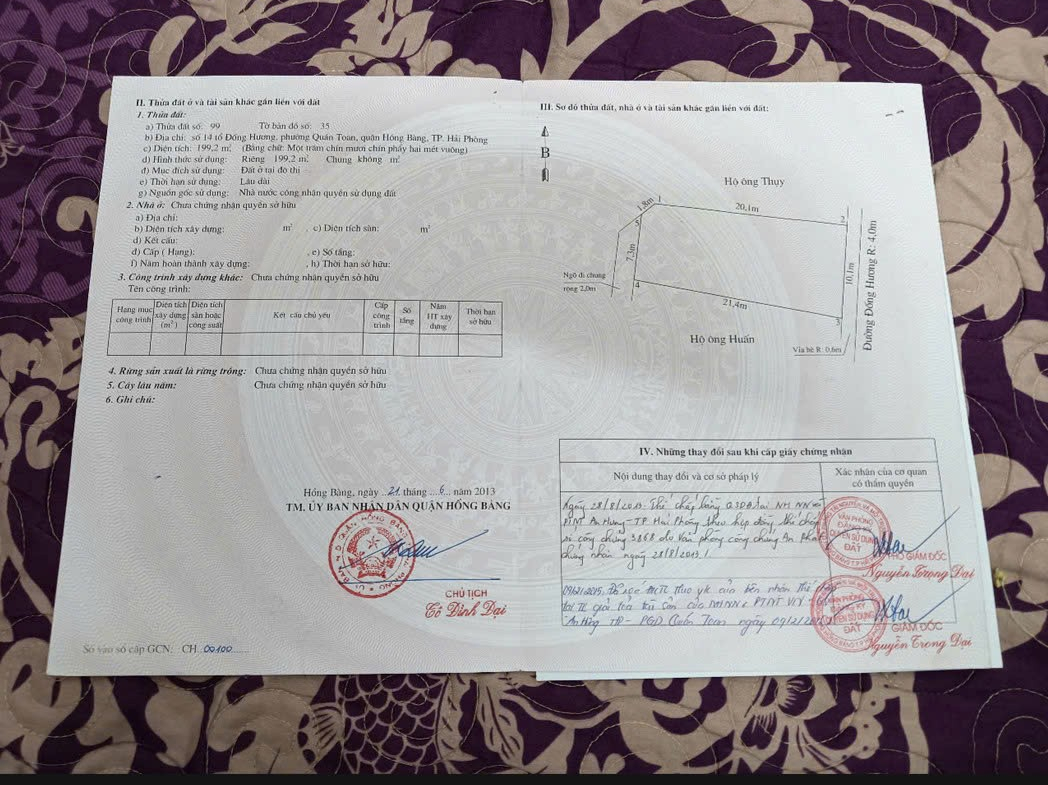 II. Thửa đất ở và tài sản khác gắn liền với đất
1. Thửa đất:
a) Thửa đất số: 99 Tờ bản đồ số: 35
b) Địa chỉ: số 14 tổ Đồng Hương, phường Quán Toan, quận Hồng Bàng, TP. Hải Phòng
c) Diện tích: 199,2 m² (Bằng chữ: Một trăm chín mươi chín phẩy hai mét vuông)
d) Hình thức sử dụng: Riêng 199,2 m² Chung không m²
đ) Mục đích sử dụng: Đất ở tại đô thị
e) Thời hạn sử dụng: Lâu dài
g) Nguồn gốc sử dụng: Nhà nước công nhận quyền sử dụng đất
2. Nhà ở: Chưa chứng nhận quyền sở hữu
a) Địa chỉ:
b) Diện tích xây dựng: m² , c) Diện tích sàn: m²
d) Kết cấu:
đ) Cấp ( Hạng): , e) Số tầng:
f) Năm hoàn thành xây dựng: , h) Thời hạn sở hữu:
3. Công trình xây dựng khác: Chưa chứng nhận quyền sở hữu
Tên công trình:
Hạng mục công trình
Diện tích xây dựng (m²)
Diện tích sàn hoặc công suất
Kết cấu chủ yếu
Cấp công trình
Số tầng
Năm HT xây dựng
Thời hạn sở hữu
4. Rừng sản xuất là rừng trồng: Chưa chứng nhận quyền sở hữu
5. Cây lâu năm: Chưa chứng nhận quyền sở hữu
6. Ghi chú:
Hồng Bàng, ngày 21 tháng 6 năm 2013
TM. ỦY BAN NHÂN DÂN QUẬN HỒNG BÀNG
CHỦ TỊCH
Tô Đình Đại
Số vào sổ cấp GCN: CH 00100
III. Sơ đồ thửa đất, nhà ở và tài sản khác gắn liền với đất:
B
Hộ ông Thụy
1,8m
1
20,1m
2
5
7,3m
4
10,1m
Đường Đồng Hương R: 4,0m
Ngõ đi chung
rộng 2,0m
21,4m
3
Hộ ông Huấn
Vỉa hè R: 0,6m
IV. Những thay đổi sau khi cấp giấy chứng nhận
Nội dung thay đổi và cơ sở pháp lý
Xác nhận của cơ quan có thẩm quyền
Ngày 28/8/2013 Thế chấp bằng QSDĐ tại NH NN &
PTNT An Hưng - TP Hải Phòng theo hợp đồng thế chấp
số công chứng 3868 do Văn phòng công chứng An Phát
chứng nhận ngày 28/8/2013.
VĂN PHÒNG
ĐĂNG KÝ
QUYỀN SỬ DỤNG
ĐẤT
PHÓ GIÁM ĐỐC
Nguyễn Trọng Đại
của bên nhận thế chấp
Quán Toan ngày
VĂN PHÒNG
ĐĂNG KÝ
QUYỀN SỬ DỤNG
ĐẤT
GIÁM ĐỐC
Nguyễn Trọng Đại